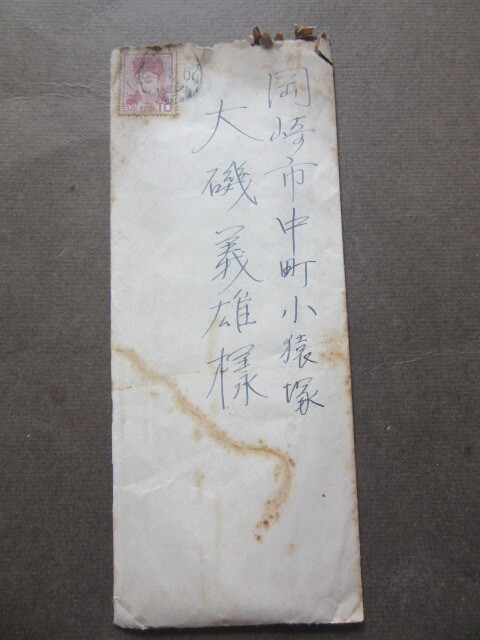 岡崎市中町小猿塚
大磯義雄様
10